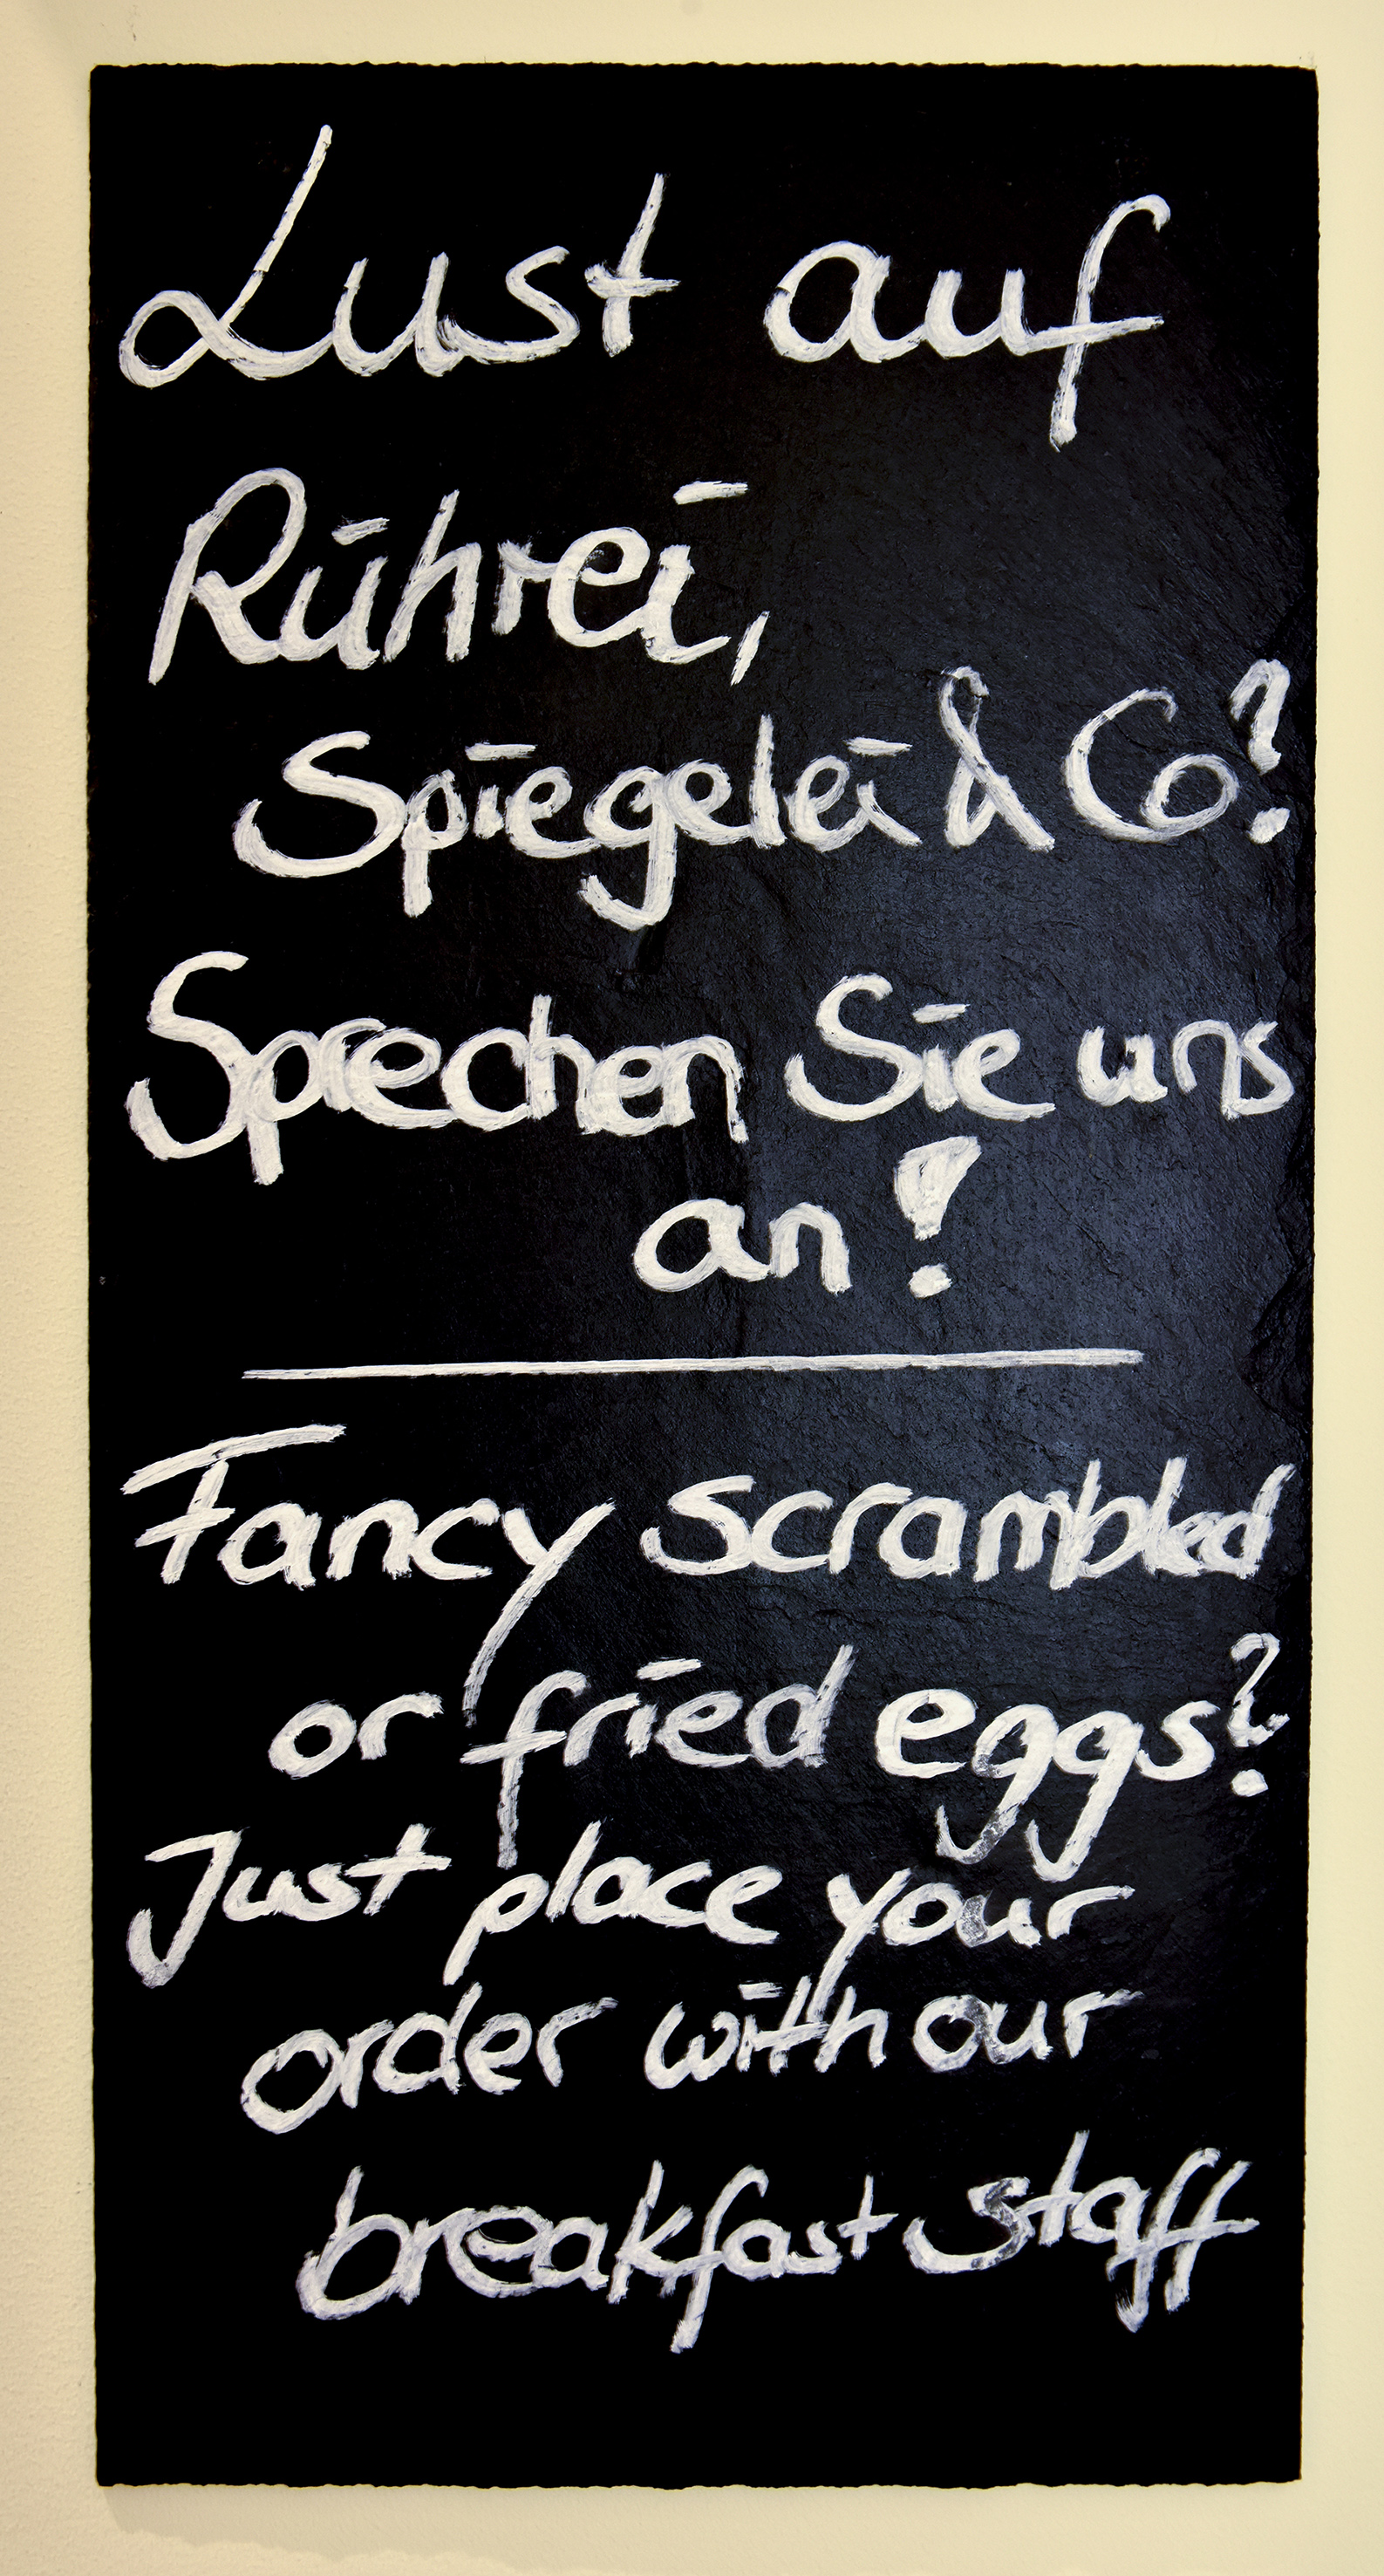 Lust auf
Rührei,
Spiegelei & Co?
Sprechen Sie uns
an!
Fancy scrambled
or fried eggs?
Just place your
order with our
breakfast staff